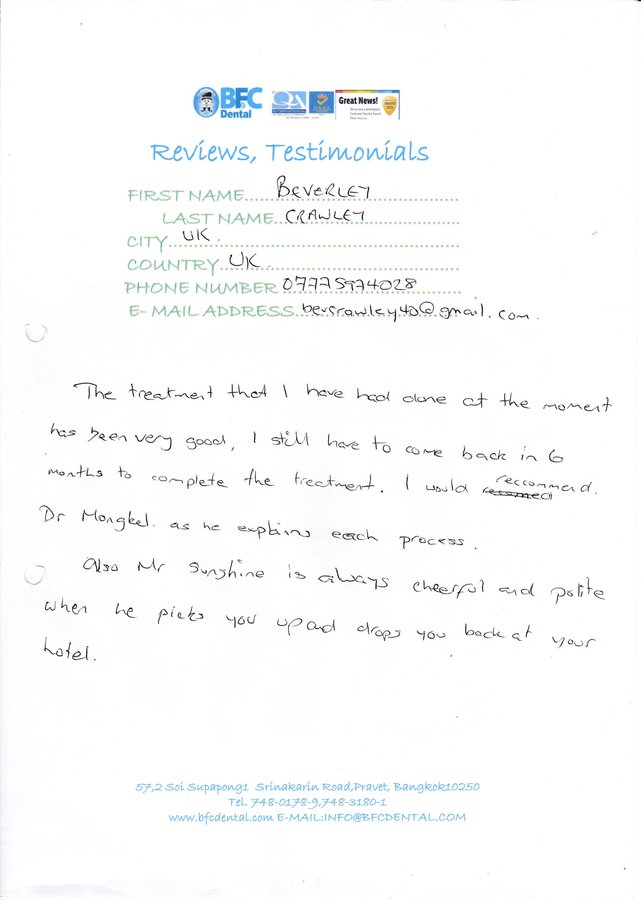 BFC
Dental
QA
Great News!
Reviews, Testimonials
FIRST NAME.... BEVERLEY
LAST NAME.. CRAWLEY
CITY.. UK.
COUNTRY. UK.
PHONE NUMBER 07775974028
E- MAIL ADDRESS. bevcrawley40@gmail.com.
The treatment that I have had done at the moment
has been very good, I still have to come back in 6
months to complete the treatment. I would reccommend.
Dr Mongkel. as he explains each process.
Also Mr Sunshine is always cheerful and polite
when he picks you up and drops you back at your
hotel.
57,2 Soi Supapong1 Srinakarin Road,Pravet, Bangkok10250
Tel. 748-0178-9,748-3180-1
www.bfcdental.com E-MAIL:INFO@BFCDENTAL.COM